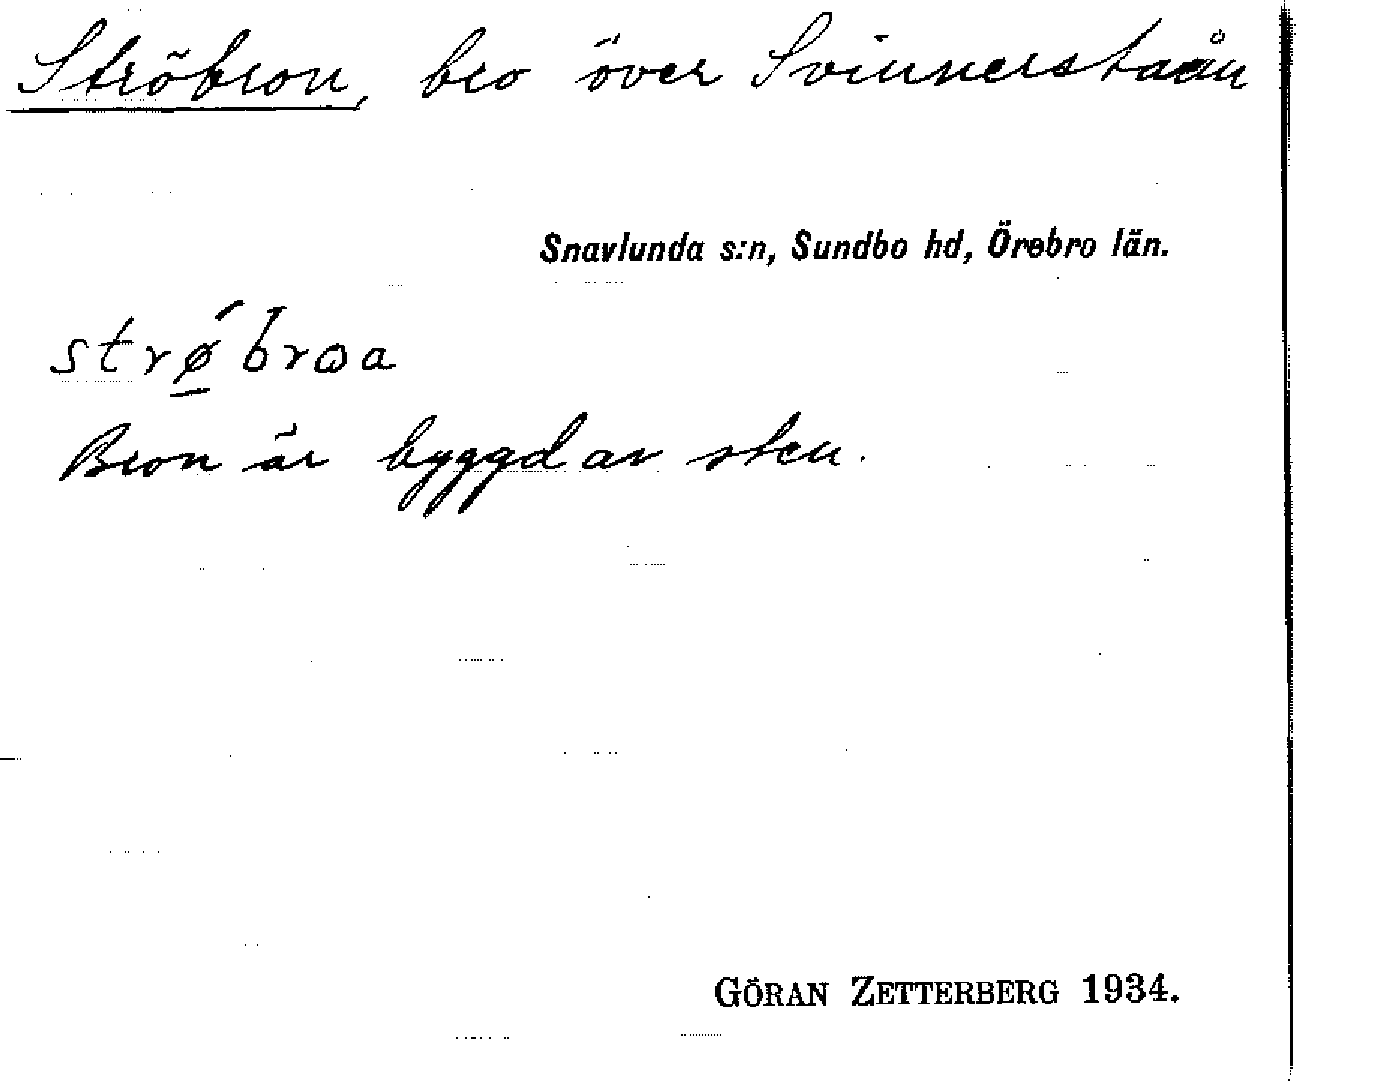 Ströbron, bro över Svinnerstaån
Snavlunda s:n, Sundbo hd, Örebro län.
strǿ̲broa
Bron är byggd av sten.
GÖRAN ZETTERBERG 1934.